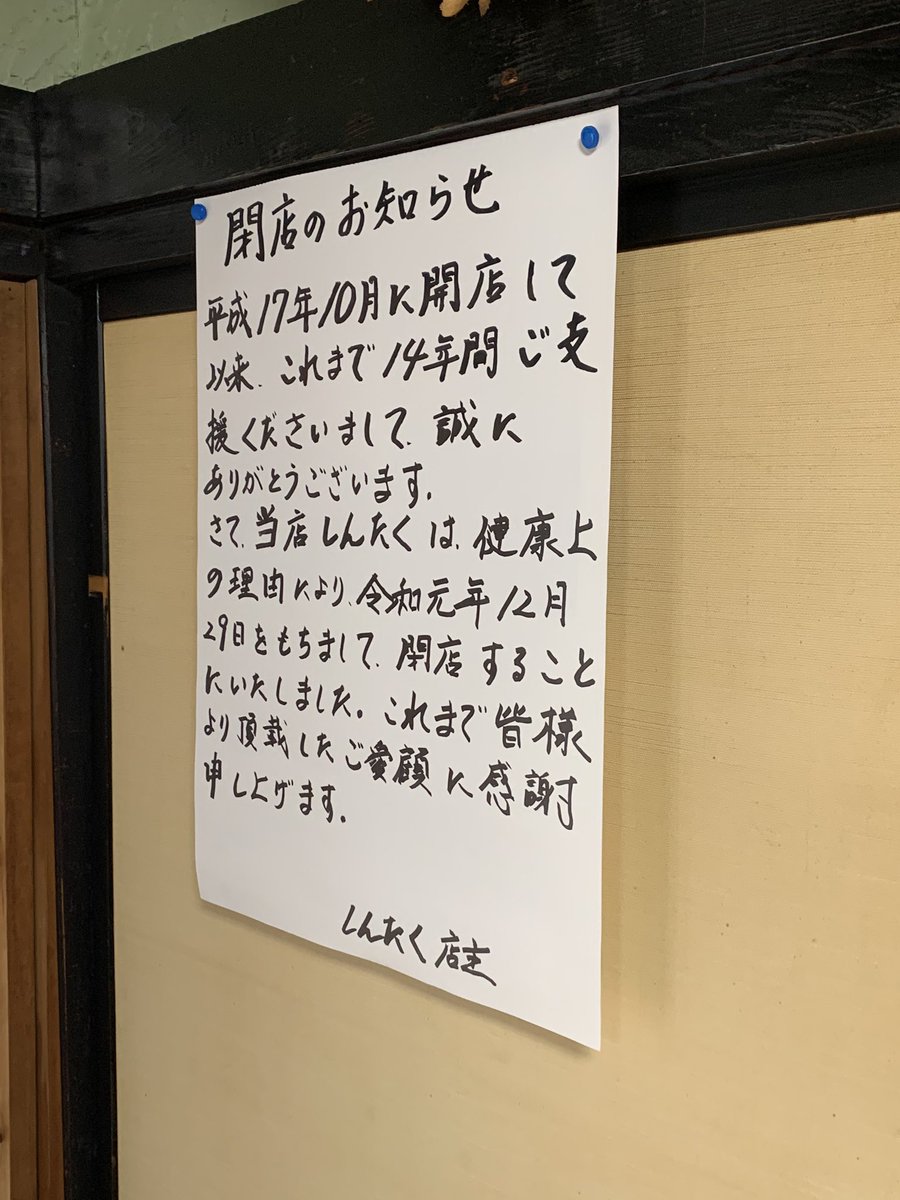 閉店のお知らせ
平成17年10月に開店して
以来、これまで14年間ご支
援くださいまして、誠に
ありがとうございます。
さて、当店しんたくは、健康上
の理由により、令和元年12月
29日をもちまして、閉店すること
にいたしました。これまで皆様
より頂戴したご愛顧に感謝
申し上げます。
しんたく店主